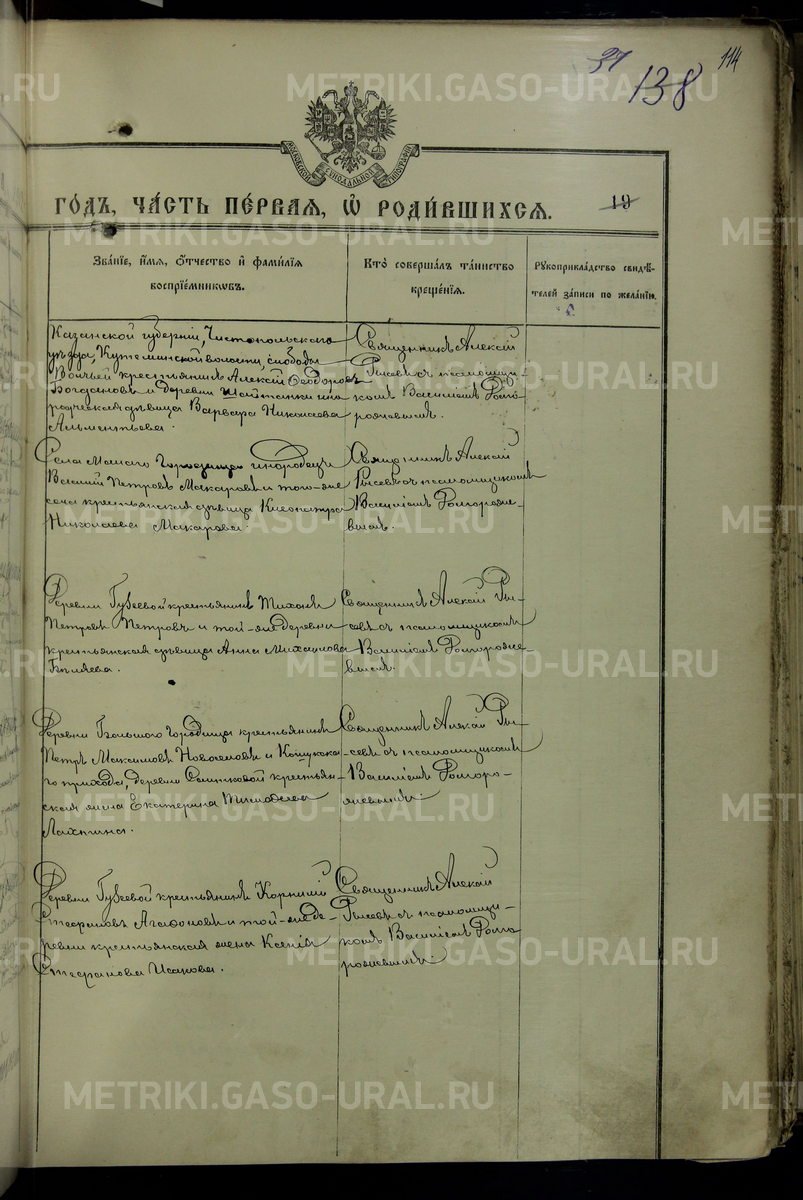 37 138 114
МОСКОВСКОЙ СѴНОДАЛЬНОЙ ТИПОГРАФІИ
ГО́ДЪ, ЧА́СТЬ ПЕ́РВАѦ, Ѡ҆ РОДИ́ВШИХСѦ. 19
Зва́нїе, и҆́мѧ, ѻ҆́тчество и҆ фами́лїѧ
воспрїе́мникѡвъ.
Кто̀ соверша́лъ та́инство
креще́нїѧ.
Рꙋкоприкла́дство свидѣ́-
телей за́писи по жела́нїю.
Казанской губерніи, Чистопольскаго
уѣзда, Кутеминской волости, слободы
Волчьей крестьянинъ Алексій Ѳеодоровъ
Богдановъ и деревни Шайтанки ино
родческая дѣвица Варвара Николаева
Альментьева.
Священникъ Алексій
Рысевъ съ псаломщи-
комъ Василіемъ
рожневымъ.
Села Малаго инородецъ
Василій Петровъ Макаровъ и того-же
села крестьянская дѣвица Клеопатра
Николаева Макарова.
Священникъ Алексій
Рысевъ съ псаломщикомъ
Василіемъ
вымъ.
Деревни Гусевой крестьянинъ Тихонъ
Петровъ Петровъ и той-же деревни
крестьянская дѣвица Анна Михаилова
Бѣляева.
Священникъ Алексій Ры-
севъ съ псаломщикомъ
Василіемъ
вымъ.
Деревни Большого Городища крестьянинъ
Петръ Максимовъ Новоселовъ и
го прихода, деревни крестьян-
ская жена Екатерина Тимоѳеева
Священникъ Алексій Ры-
севъ съ псаломщикомъ
Василіемъ
жневымъ.
Деревни Гусевой крестьянинъ Корнилій
Стефановъ Агафоновъ и той-же де-
ревни крестьянская жена Ксенія
Стефанова Исакова.
Священникъ Алексій
Рысевъ съ псаломщи-
комъ Василіемъ
рожневымъ.
METRIKI.GASO-URAL.RU